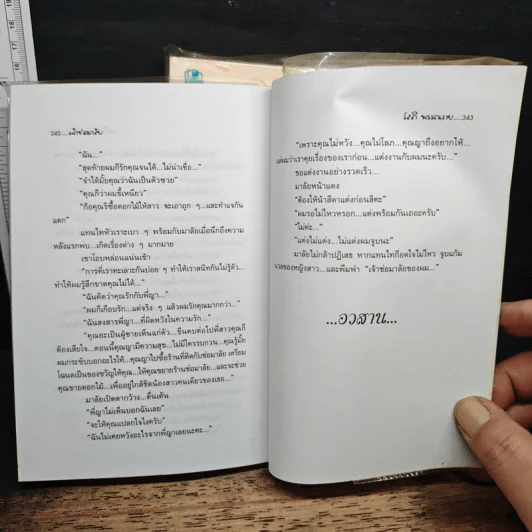 342....เจ้าช่อมาลัย
"ฉัน..."
"สุดท้ายผมก็รักคุณจนได้...ไม่น่าเชื่อ..."
"จำได้มั้ยคุณว่าฉันเป็นตัวซวย"
"คุณก็ว่าผมขี้เหนียว"
"ก็คุณริซื้อดอกไม้ให้สาว จะเอาถูก ๆ...และทำแจกัน
แตก"
แทนไทหัวเราะเบา ๆ พร้อมกับมาลัยเมื่อนึกถึงความ
หลังแรกพบ...เกิดเรื่องต่าง ๆ มากมาย
เขาโอบหล่อนแน่นเข้า
"การที่เราทะเลาะกันบ่อย ๆ ทำให้เราสนิทกันไม่รู้ตัว...
ทำให้ผมรู้สึกขาดคุณไม่ได้..."
"ฉันคิดว่าคุณรักกับพี่ญา..."
"ผมก็เกือบรัก...แต่จริง ๆ แล้วผมรักคุณมากกว่า..."
"ฉันสงสารพี่ญา...ที่ผิดหวังในความรัก..."
"คุณยะเป็นผู้ชายเห็นแก่ตัว...ขืนคบต่อไปพี่สาวคุณก็
ต้องเสียใจ...ตอนนี้คุณญามีความสุข...ไม่มีใครรบกวน...คุณรู้มั้ย
ผมกระซิบบอกอะไรให้...คุณญาไปซื้อร้านที่ติดกับช่อมาลัย เตรียม
โอนเป็นของขวัญให้คุณ...ให้คุณขยายร้านช่อมาลัย...และจะช่วย
คุณขายดอกไม้...เพื่ออยู่ใกล้ชิดน้องสาวคนเดียวของเธอ..."
มาลัยเปิดตากว้าง...ตื่นเต้น
"พี่ญาไม่เห็นบอกฉันเลย"
"จะให้คุณแปลกใจไงครับ"
"ฉันไม่เคยหวังอะไรจากพี่ญาเลยนะคะ..."
343
"เพราะคุณไม่หวัง...คุณไม่โลภ...คุณญาถึงอยากให้...
แต่ผมว่าเราคุยเรื่องของเราก่อน...แต่งงานกับผมนะครับ..."
ขอแต่งงานอย่างรวดเร็ว...
มาลัยหน้าแดง
"ต้องให้น้าสีดาแต่งก่อนสิคะ"
"ผมรอไม่ไหวหรอก...แต่งพร้อมกันเถอะครับ"
"ไม่ค่ะ..."
"แต่งไม่แต่ง...ไม่แต่งผมจูบนะ"
มาลัยไม่กล้าปฏิเสธ หากแทนไทก็อดใจไม่ไหว จูบแก้ม
นวลของหญิงสาว...และพึมพำ "เจ้าช่อมาลัยของผม..."
...อวสาน...